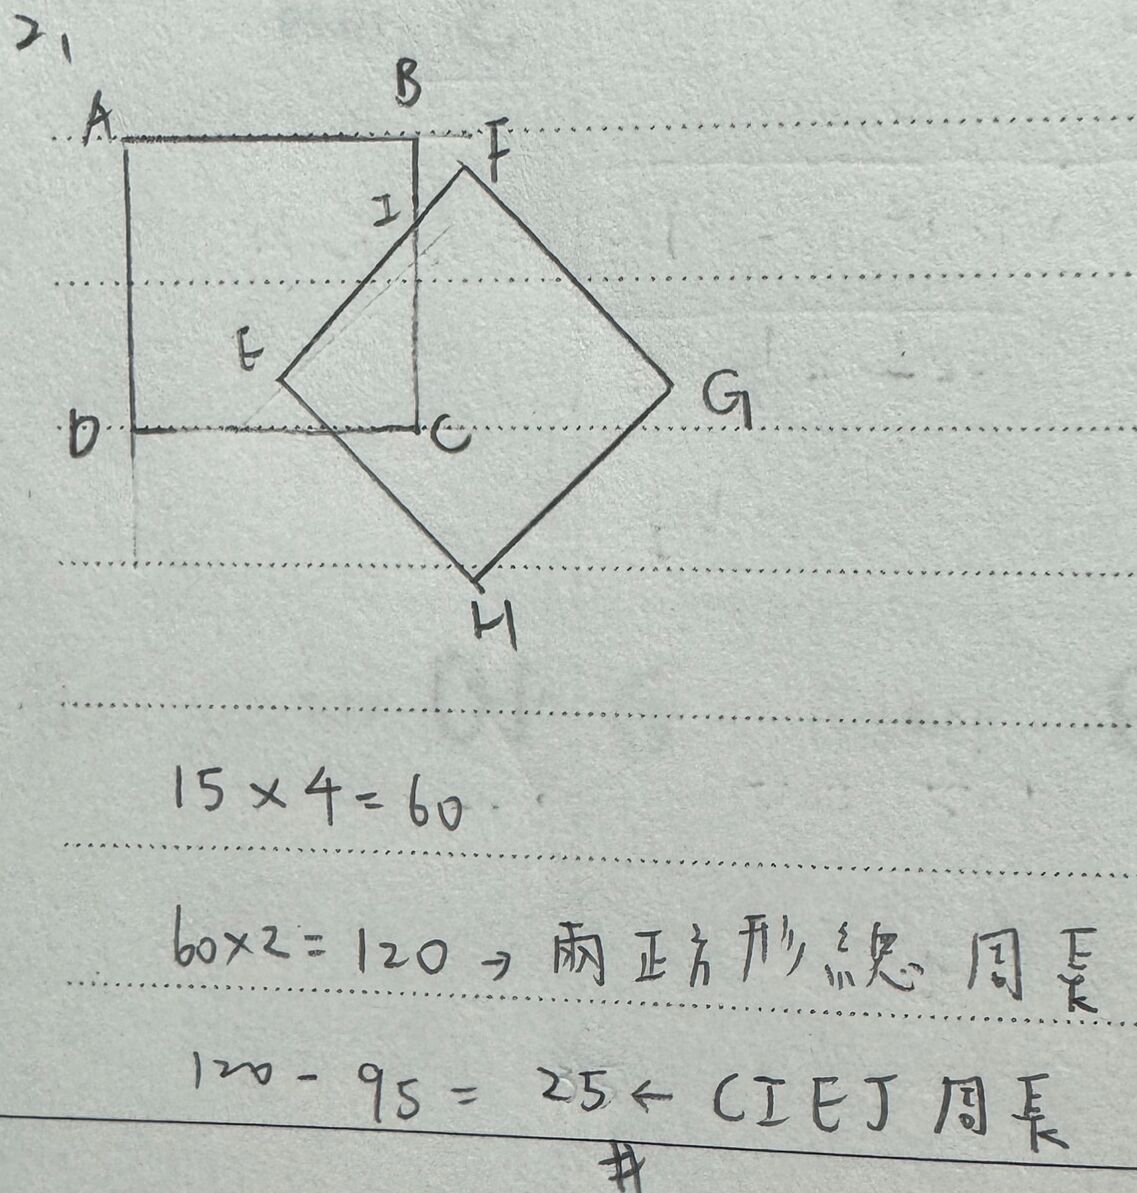 2,
A
B
F
I
E
D
C
G
H
15×4=60
60×2=120→兩正方形總周長
120-95=25←CIEJ周長
#